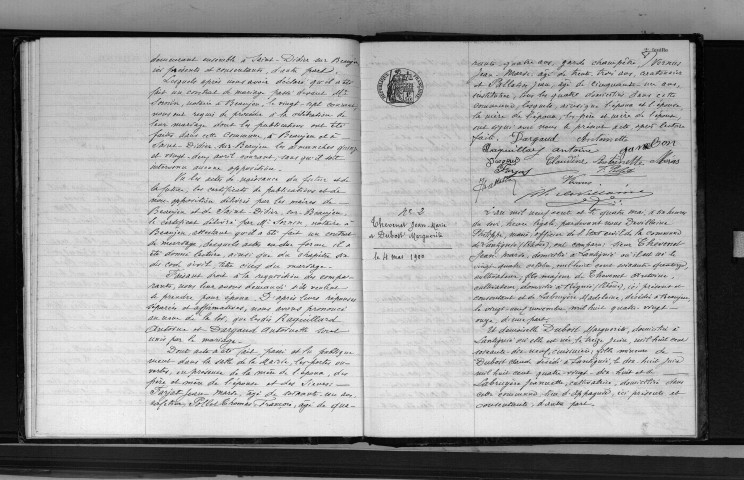 demeurant ensemble à Saint-Didier sur Beaujeu
ici présents et consentants, d'autre part.
Lesquels après nous avoir déclaré qu'il a été
fait un contrat de mariage passé devant Me
Sornin, notaire à Beaujeu, le vingt-sept courant
nous ont requis de procéder à la célébration de
leur mariage dont les publications ont été
faites dans cette Commune, à Beaujeu et à
Saint-Didier sur Beaujeu les dimanches quinze
et vingt-deux avril courant, sans qu'il soit
intervenu aucune opposition.
Vu les actes de naissance du futur et de
la future, les certificats de publications et de
non-opposition délivrés par les maires de
Beaujeu et de Saint-Didier sur Beaujeu,
le certificat délivré par Me Sornin, notaire à
Beaujeu, attestant qu'il a été fait un contrat
de mariage, desquels actes en due forme il a
été donné lecture, ainsi que du chapitre six
du code civil, titre cinq du mariage.
Faisant droit à la réquisition des compa-
rants, nous leur avons demandé s'ils veulent
se prendre pour époux. D'après leurs réponses
séparées et affirmatives, nous avons prononcé
au nom de la loi, que les dits Raquillard
Antoine et Dargaud Antoinette sont
unis par le mariage.
Dont acte a été fait, passé et lu publique-
ment dans la salle de la Mairie, les portes ou-
vertes, en présence de la mère de l'époux, des
père et mère de l'épouse et des Sieurs
Farjat Jean-Marie, âgé de soixante-un ans,
Thomas François, âgé de qua-
rante-quatre ans, garde champêtre, Vernus
Jean-Marie, âgé de trente-trois ans, cultivateur
et Jean, âgé de cinquante un ans,
instituteur, tous les quatre domiciliés dans cette
commune, lesquels, ainsi que l'époux et l'épouse
la mère de l'époux, les père et mère de l'épouse,
ont signé avec nous le présent acte après lecture
faite. Dargaud Antoinette
Raquillard antoine
Dargaud Claudine
Vernus
No 2
Thevenet Jean Marie
et Dubost Marguerite
le 4 mai 1900
L'an mil neuf cent et le quatre mai, à dix heures
du soir, heure légale, pardevant nous Devillaine
Philippe, maire officier de l'état civil de la commune
de Lantignié (Rhône), ont comparu : Sieur Thevenet
Jean Marie, domicilié à Lantignié où il est né le
vingt-quatre octobre, mil huit cent soixante quatorze
cultivateur, fils majeur de Thevenet Antoine,
cultivateur, domicilié à Régnié (Rhône), ici présent et
consentant et de Labruyère Madeleine, décédée à Beaujeu,
le vingt-neuf novembre mil huit cent quatre-vingt-
onze, d'une part.
Et demoiselle Dubost Marguerite, domiciliée à
Lantignié où elle est née le treize juin, mil huit cent
soixante-dix-neuf, cuisinière, fille mineure de
Dubost décédé à Lantignié, le dix-huit juin
mil huit cent quatre-vingt-dix-huit et de
Labruyère Jeannette, cultivatrice, domiciliée dans
cette commune, lieu d'Appagnié, ici présente et
consentante, d'autre part.